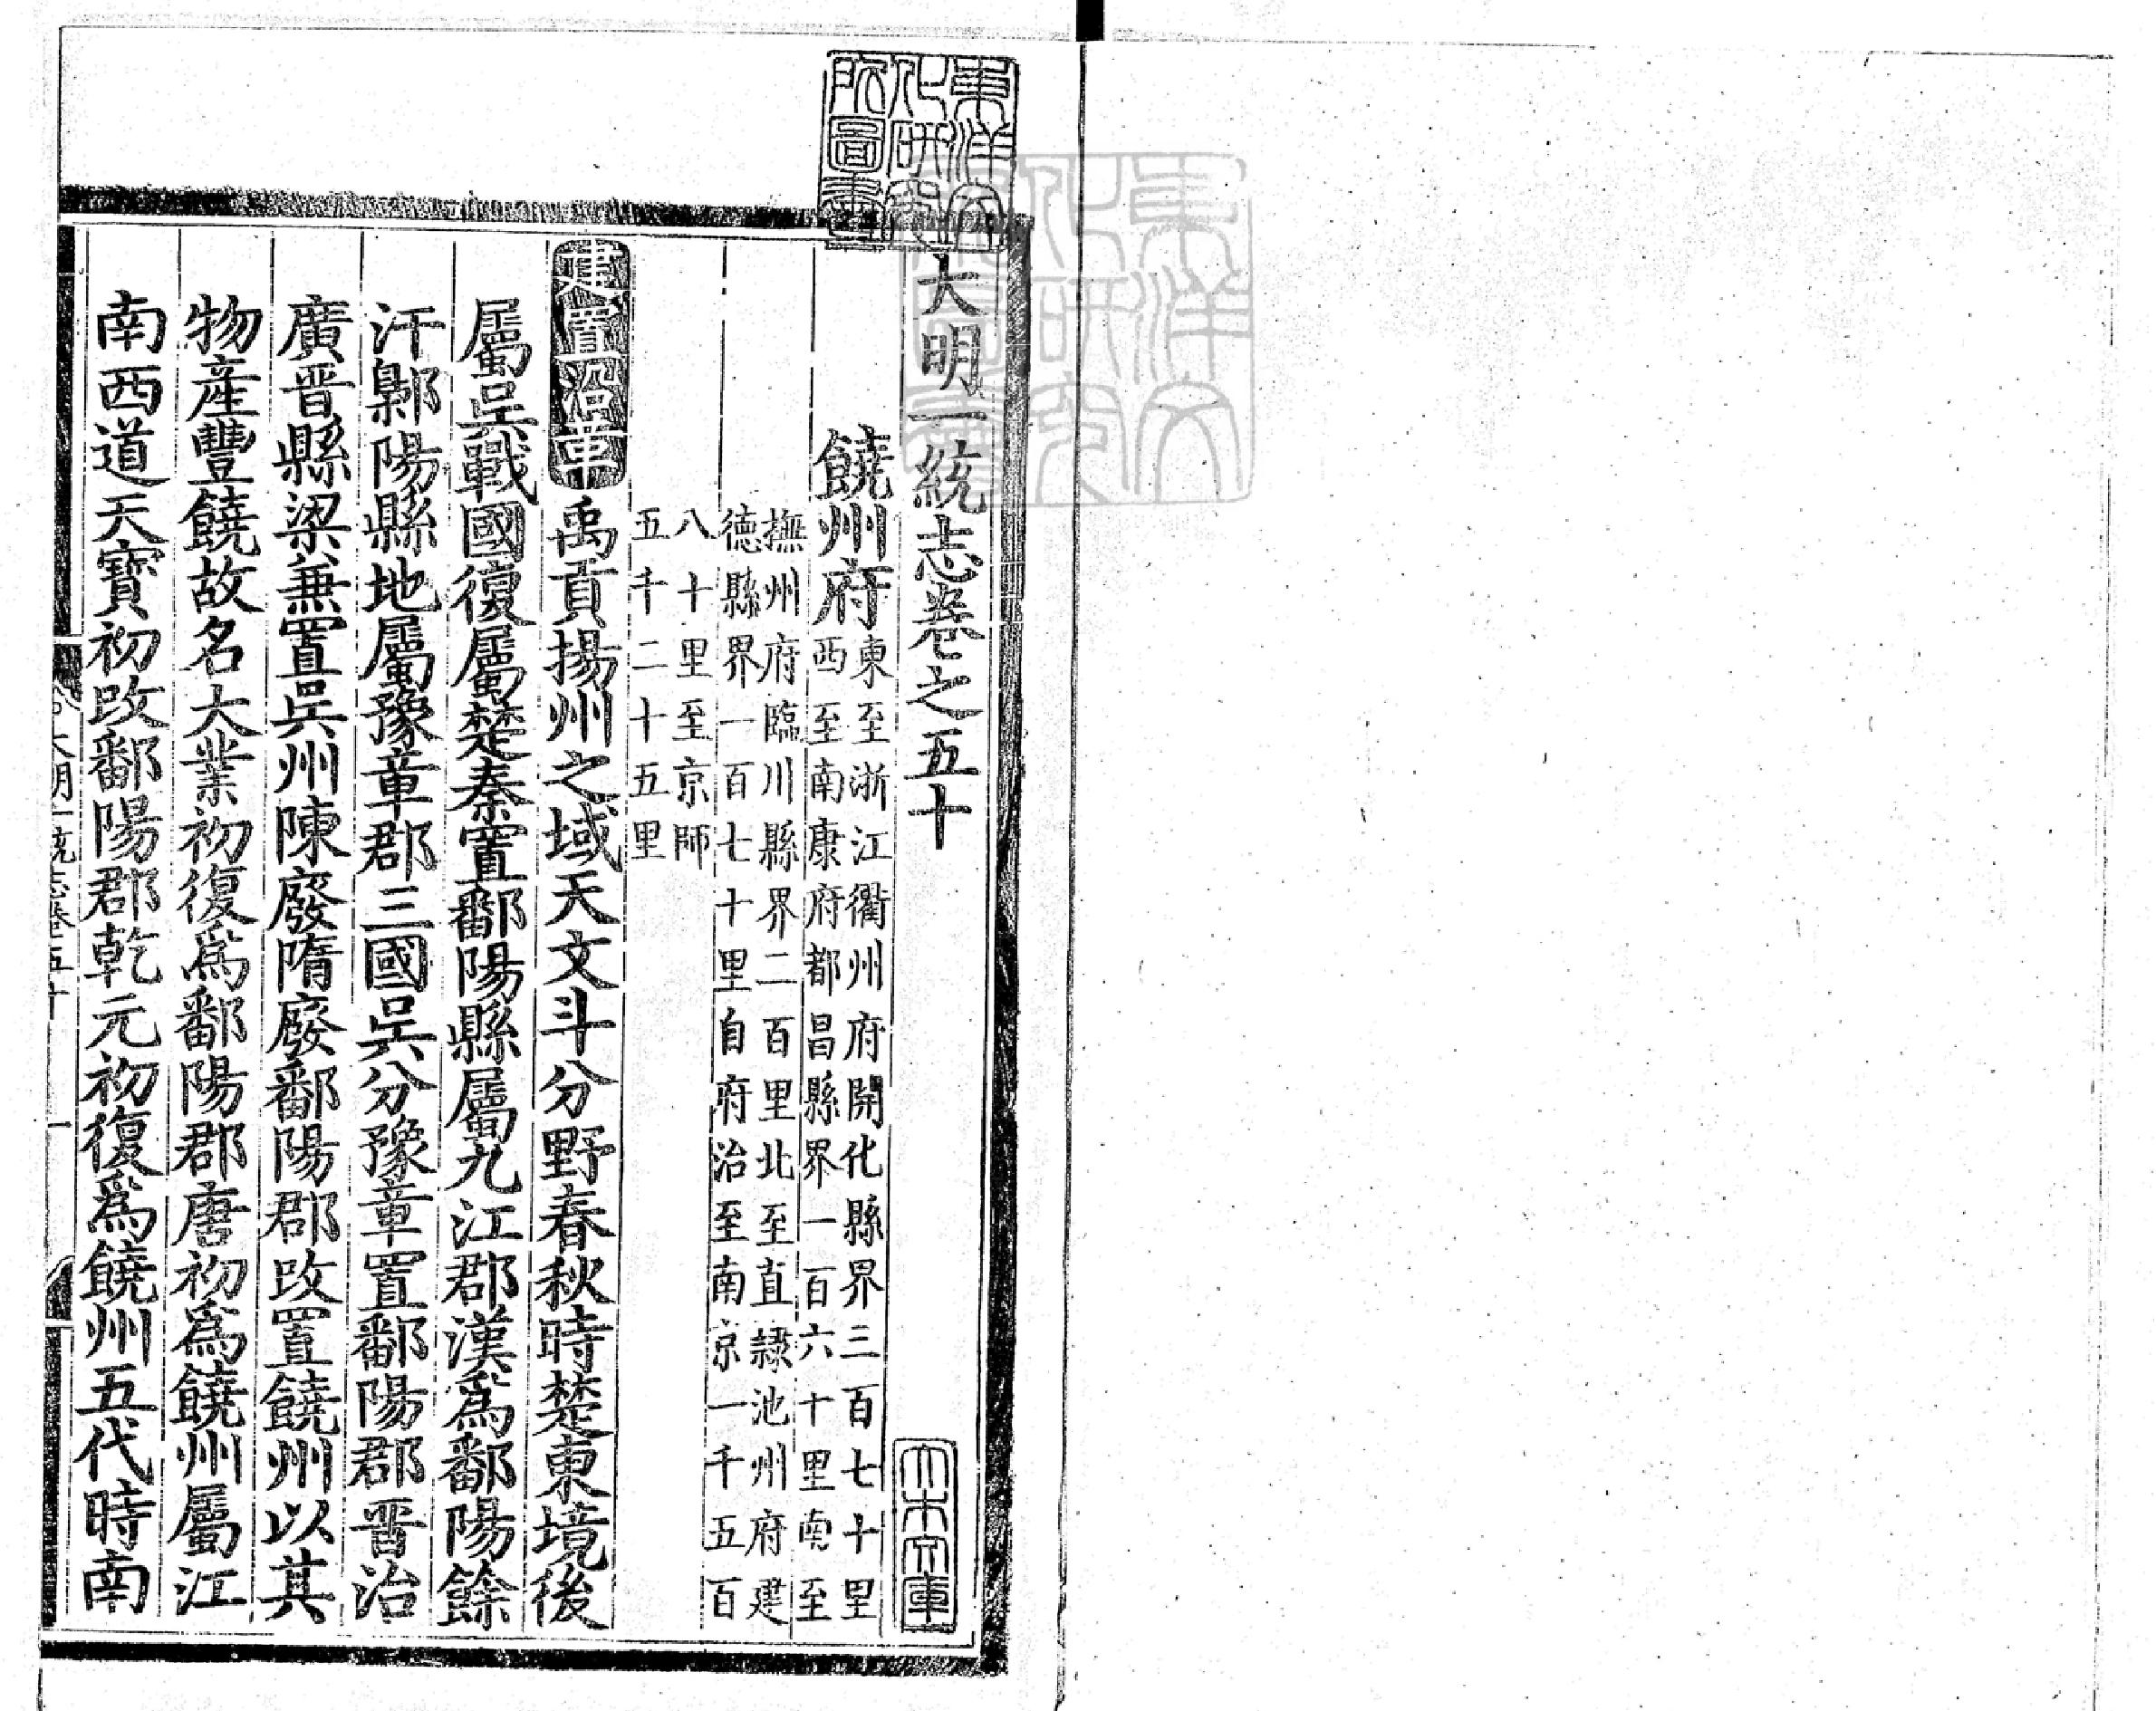 大明一統志卷之五十
饒州府
東至浙江衢州府開化縣界三百七十里
西至南康府都昌縣界一百六十里南至
撫州府臨川縣界二百里北至直隷池州府建
德縣界一百七十里自府治至南京一千五百
八十里至京師
五千二十五里
建置沿革禹貢揚州之域天文斗分野春秋時楚東境後
屬吳戰國復屬楚秦置鄱陽縣屬九江郡漢爲鄱陽餘
汗鄡陽縣地屬豫章郡三國吳分豫章置鄱陽郡晋治
廣晋縣梁兼置吳州陳廢隋廢鄱陽郡改置饒州以其
物產豐饒故名大業初復爲鄱陽郡唐初爲饒州屬江
南西道天寳初改鄱陽郡乾元初復爲饒州五代時南
大明一統志卷五十 一
東洋文化研究所圖書
大木文庫